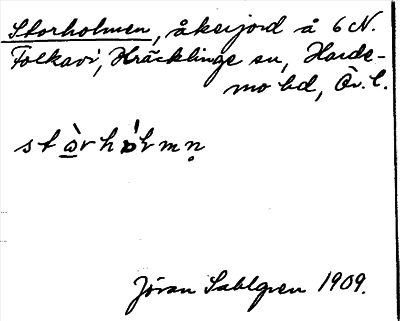 Storholmen, åkerjord å 6 N.
Folkavi, Kräcklinge sn, Hardemo hd, Ör. l.
Jöran Sahlgren 1909.